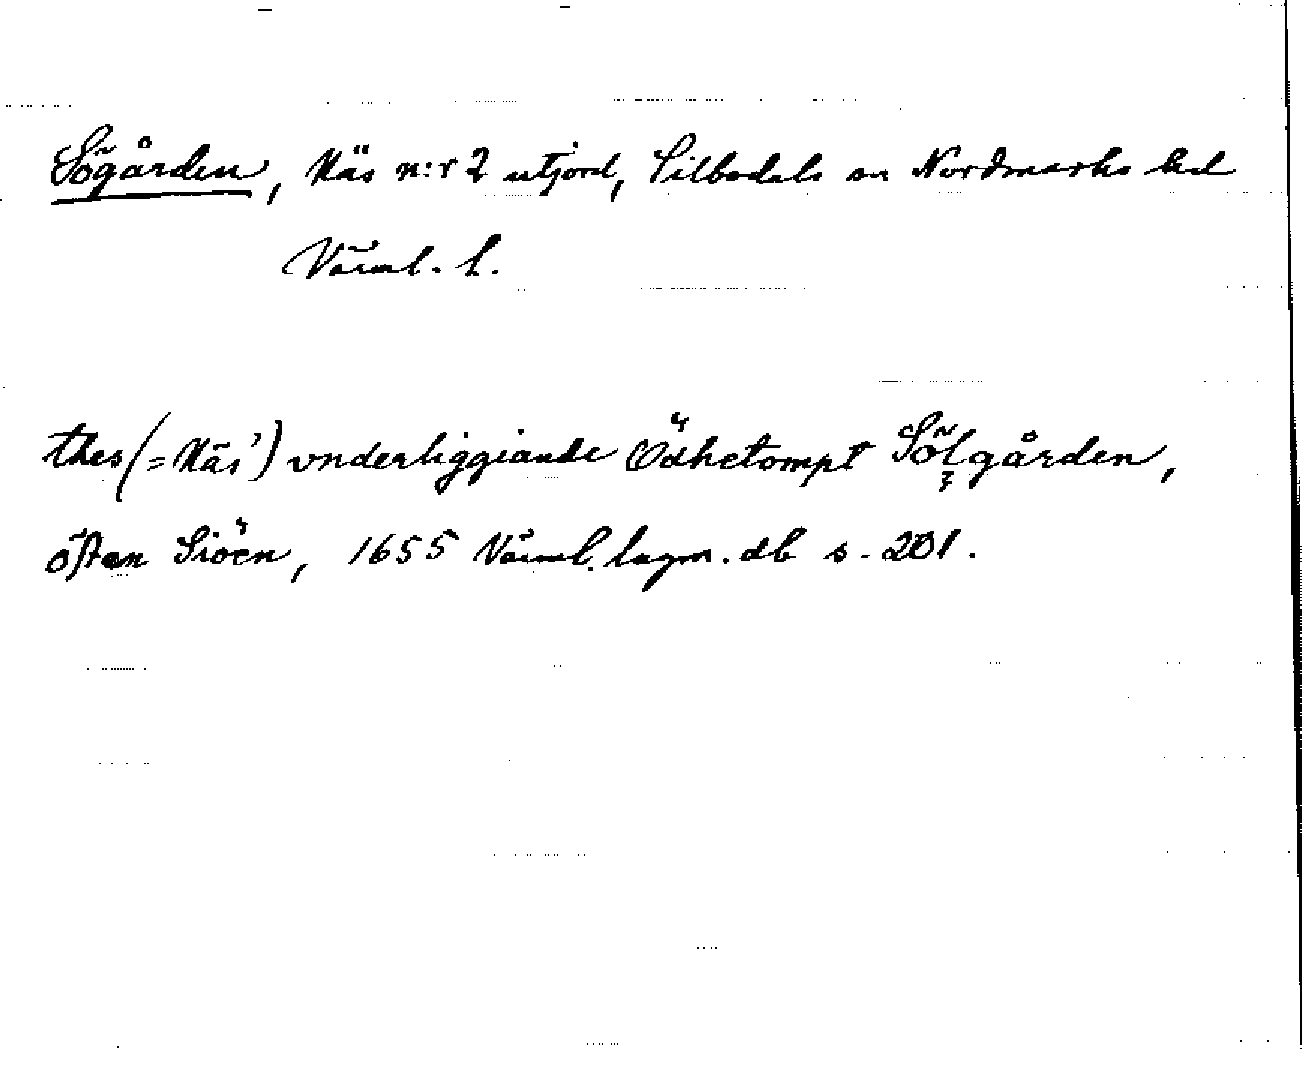 Sögården, Näs n:r 2 utjord, Silbodals sn Nordmarks hd
Värml. l.
thes (= Näs') vnderliggiande Ödhetompt Sölgården,
östan Siöen, 1655 Värml. lagm. db s. 201.